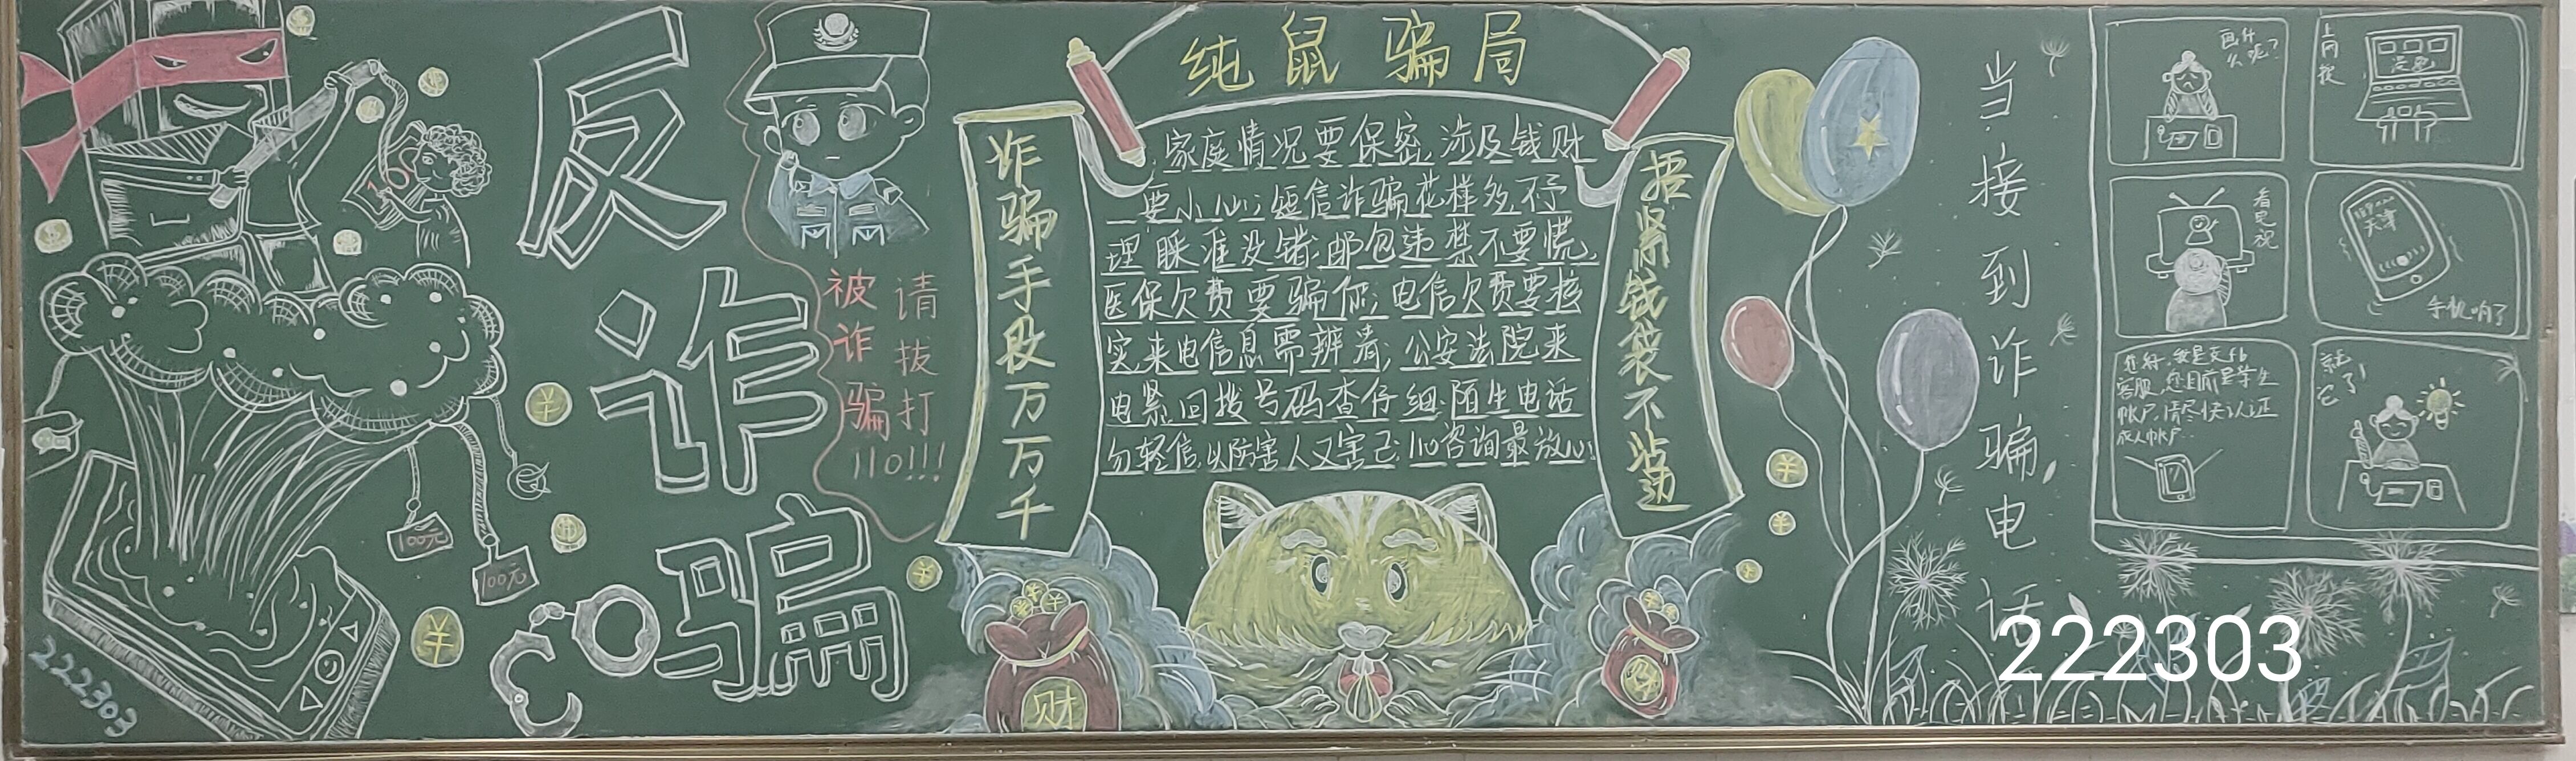 反诈骗
被诈骗
请拨打
110!!!
100元
100元
222303
纯鼠骗局
诈骗手段万万千
捂紧钱袋不沾边
家庭情况要保密;涉及钱财
要小心;短信诈骗花样多,不予
理睬准没错;邮包违禁不要慌,
医保欠费要骗你;电信欠费要核
实,来电信息需辨清;公安法院来
电紧,回拨号码查仔细;陌生电话
勿轻信,以防害人又害己;110咨询最放心!
财
财
当接到诈骗电话
画什
么呢?
上网搜
漫画
看电视
天津
手机响了
您好,我是支fb
客服,您目前是学生
帐户,请尽快认证
成人帐户..
就
它了!
222303